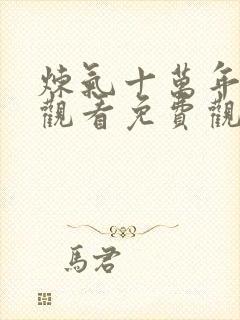 煉氣十萬年
觀看免費觀
馬君